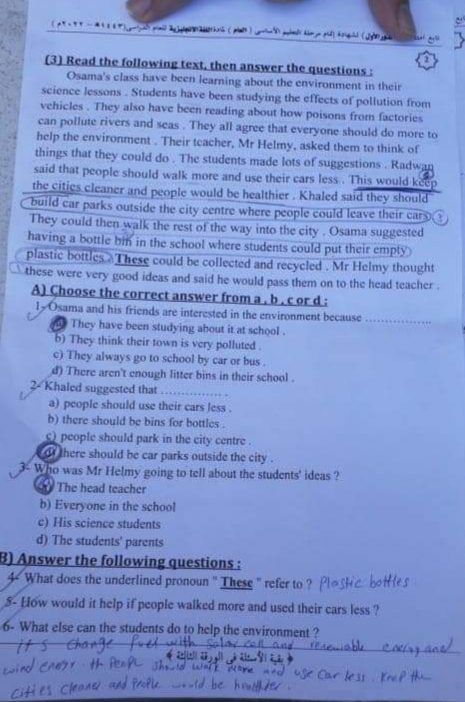 تابع امتحان الدور الأول ( لشهادة إتمام مرحلة التعليم الأساسى ( العام ) لمادة اللغة الإنجليزية للعام الدراسى
2
(3) Read the following text, then answer the questions :
Osama's class have been learning about the environment in their
science lessons . Students have been studying the effects of pollution from
vehicles . They also have been reading about how poisons from factories
can pollute rivers and seas . They all agree that everyone should do more to
help the environment . Their teacher, Mr Helmy, asked them to think of
things that they could do . The students made lots of suggestions . Radwan
said that people should walk more and use their cars less . This would keep
the cities cleaner and people would be healthier . Khaled said they should
build car parks outside the city centre where people could leave their cars .
They could then walk the rest of the way into the city . Osama suggested
having a bottle bin in the school where students could put their empty
plastic bottles . These could be collected and recycled . Mr Helmy thought
these were very good ideas and said he would pass them on to the head teacher .
A) Choose the correct answer from a , b , c or d :
1- Osama and his friends are interested in the environment because ..................
a) They have been studying about it at school .
b) They think their town is very polluted .
c) They always go to school by car or bus .
d) There aren't enough litter bins in their school .
2- Khaled suggested that ..................
a) people should use their cars less .
b) there should be bins for bottles .
c) people should park in the city centre .
d) there should be car parks outside the city .
3- Who was Mr Helmy going to tell about the students' ideas ?
a) The head teacher
b) Everyone in the school
c) His science students
d) The students' parents
B) Answer the following questions :
4- What does the underlined pronoun " These " refer to ? Plastic bottles .
5- How would it help if people walked more and used their cars less ?
6- What else can the students do to help the environment ?
it's change fuel with solar cell and renewable energy and
﴿ بقية الأسئلة في الورقة الثالثة ﴾
wind energy people should walk more and use car less . Keep the
cities cleaner and people would be healthier .